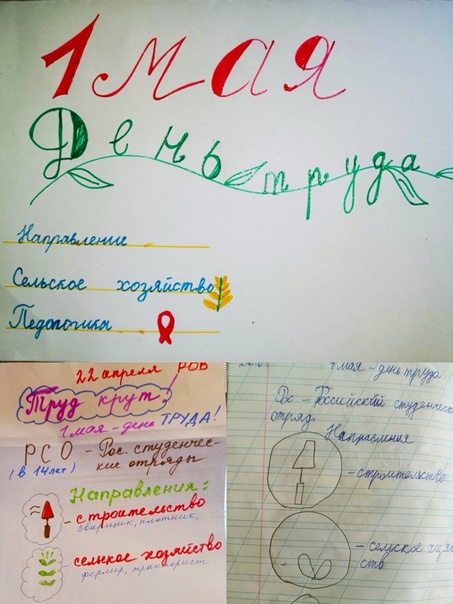 1 мая
День труда
Направление
Сельское хозяйство
Педагогика
22 апреля РОВ
Труд крут!
1 мая - день ТРУДА!
РСО - Рос. студенчес-
(в 14 лет) кие отряды
Направления:
- строительство
сварщик, плотник,
- сельское хозяйство
фермер, тракторист
1 мая - день труда
Рос - Российский студенчес
отряд.
Направления
- строительство
- сельское хозяй
ство